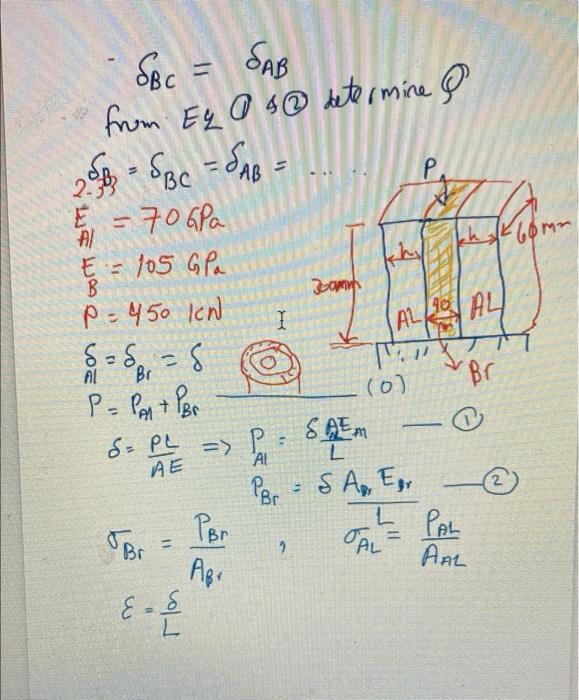 δBC = δAB
from Eq ① & ② determine P
2-33
δB = δBC = δAB = .....
E Al = 70 GPa
E B = 105 GPa
P = 450 kN
δ Al = δ Br = δ
P = P Al + P Br (0)
δ = PL/AE => P Al = δ A E Al / L — ①
P Br = δ A Br E Br / L — ②
σ Br = P Br / A Br , σ AL = P AL / A AL
ε = δ / L
P
h
h
60 mm
300mm
AL
40
mm
AL
Br